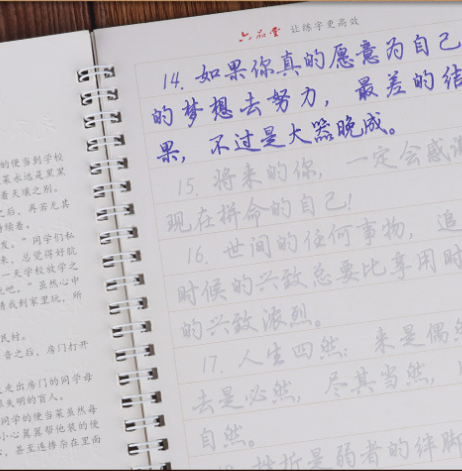 六品堂 让练字更高效
14. 如果你真的愿意为自己
的梦想去努力，最差的结
果，不过是大器晚成。
15. 将来的你，一定会感谢
现在拼命的自己！
16. 世间的任何事物，追
时候的兴致总要比享用时
的兴致浓烈。
17. 人生四然：来是偶然
去是必然，尽其当然，
自然。
挫折是弱者的绊脚
的便当到学校
菜永远是黑黑
着天壤之别。
之后，再若无其
持续着。
发。”同学们私
来，总觉得好航
一天学校放学之
玩吧。”虽然心中
请我到家里玩，所
民村。
音之后，房门打开
走出房门的同学母
那失明的盲人。
同学的便当菜虽然每
小心翼翼帮他装的便
，甚至连掺杂在里面